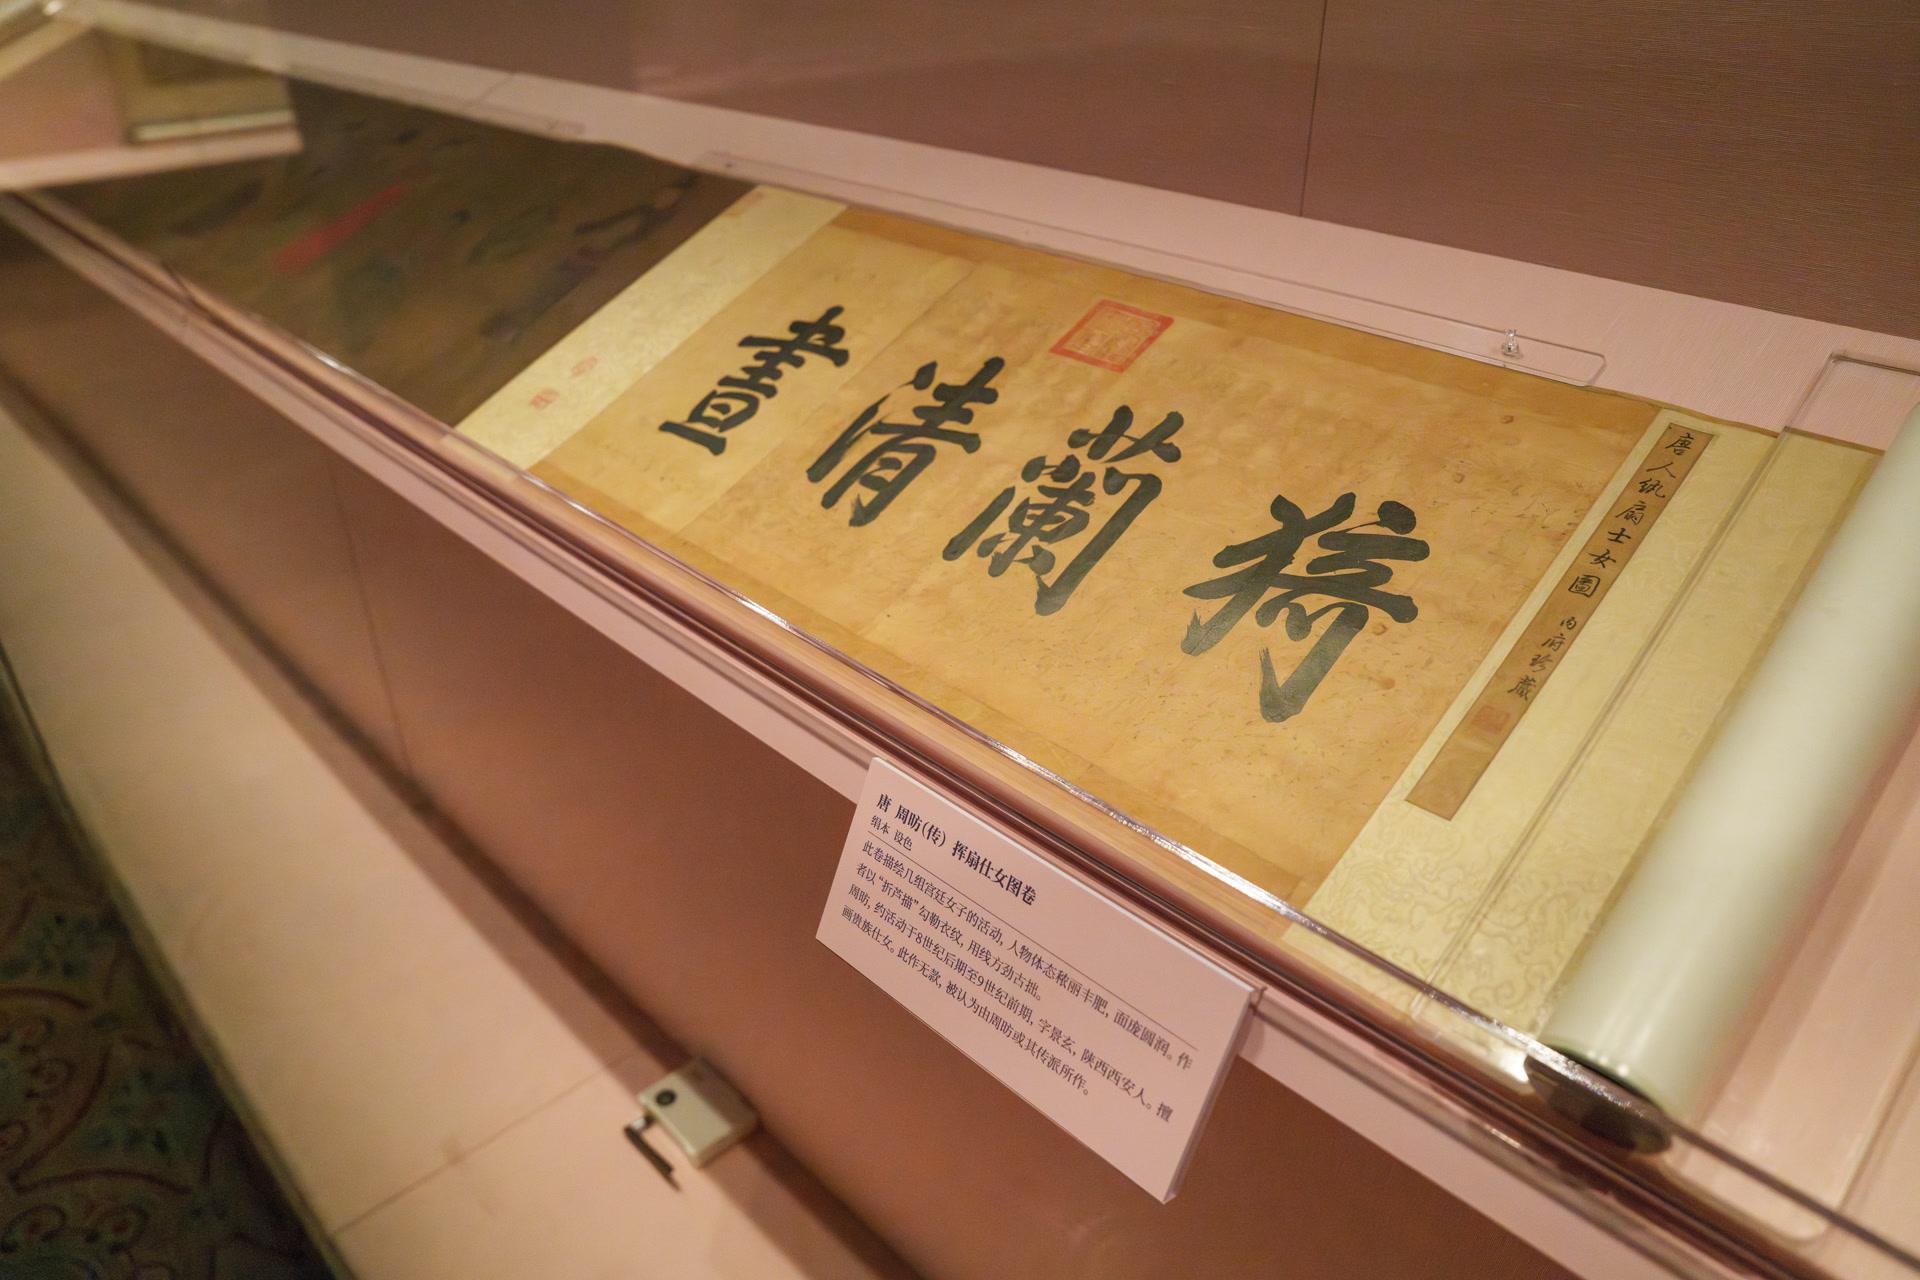 猗蘭清晝
唐人紈扇士女圖 内府珍藏
唐 周昉(传) 挥扇仕女图卷
绢本 设色
此卷描绘几组宫廷女子的活动，人物体态秾丽丰肥，面庞圆润。作
者以“折芦描”勾勒衣纹，用线方劲古拙。
周昉，约活动于8世纪后期至9世纪前期，字景玄，陕西西安人。擅
画贵族仕女。此作无款，被认为由周昉或其传派所作。